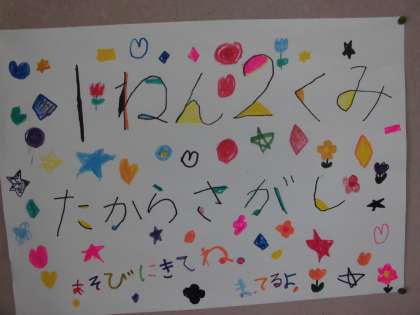 1ねん2くみ
たからさがし
あそびにきてね。
まってるよ。